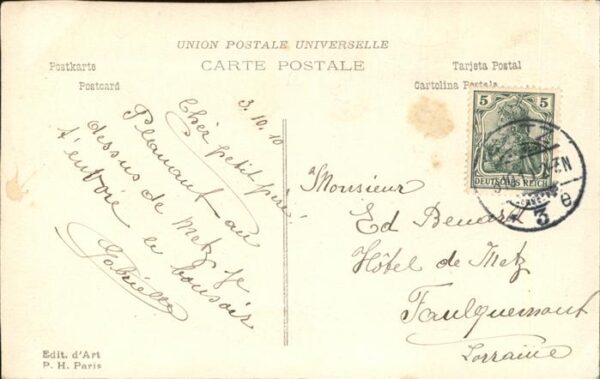 UNION POSTALE UNIVERSELLE
CARTE POSTALE
Postkarte
Postcard
Tarjeta Postal
Cartolina Postale
3.10.10
Cher petit père,
Planant au
dessus de Metz je
t'envoie le bonsoir
Gabrielle
5 5
DEUTSCHES REICH
3 e
Monsieur
Ed
Hôtel de Metz
Faulquemont
Lorraine
Edit. d'Art
P. H. Paris